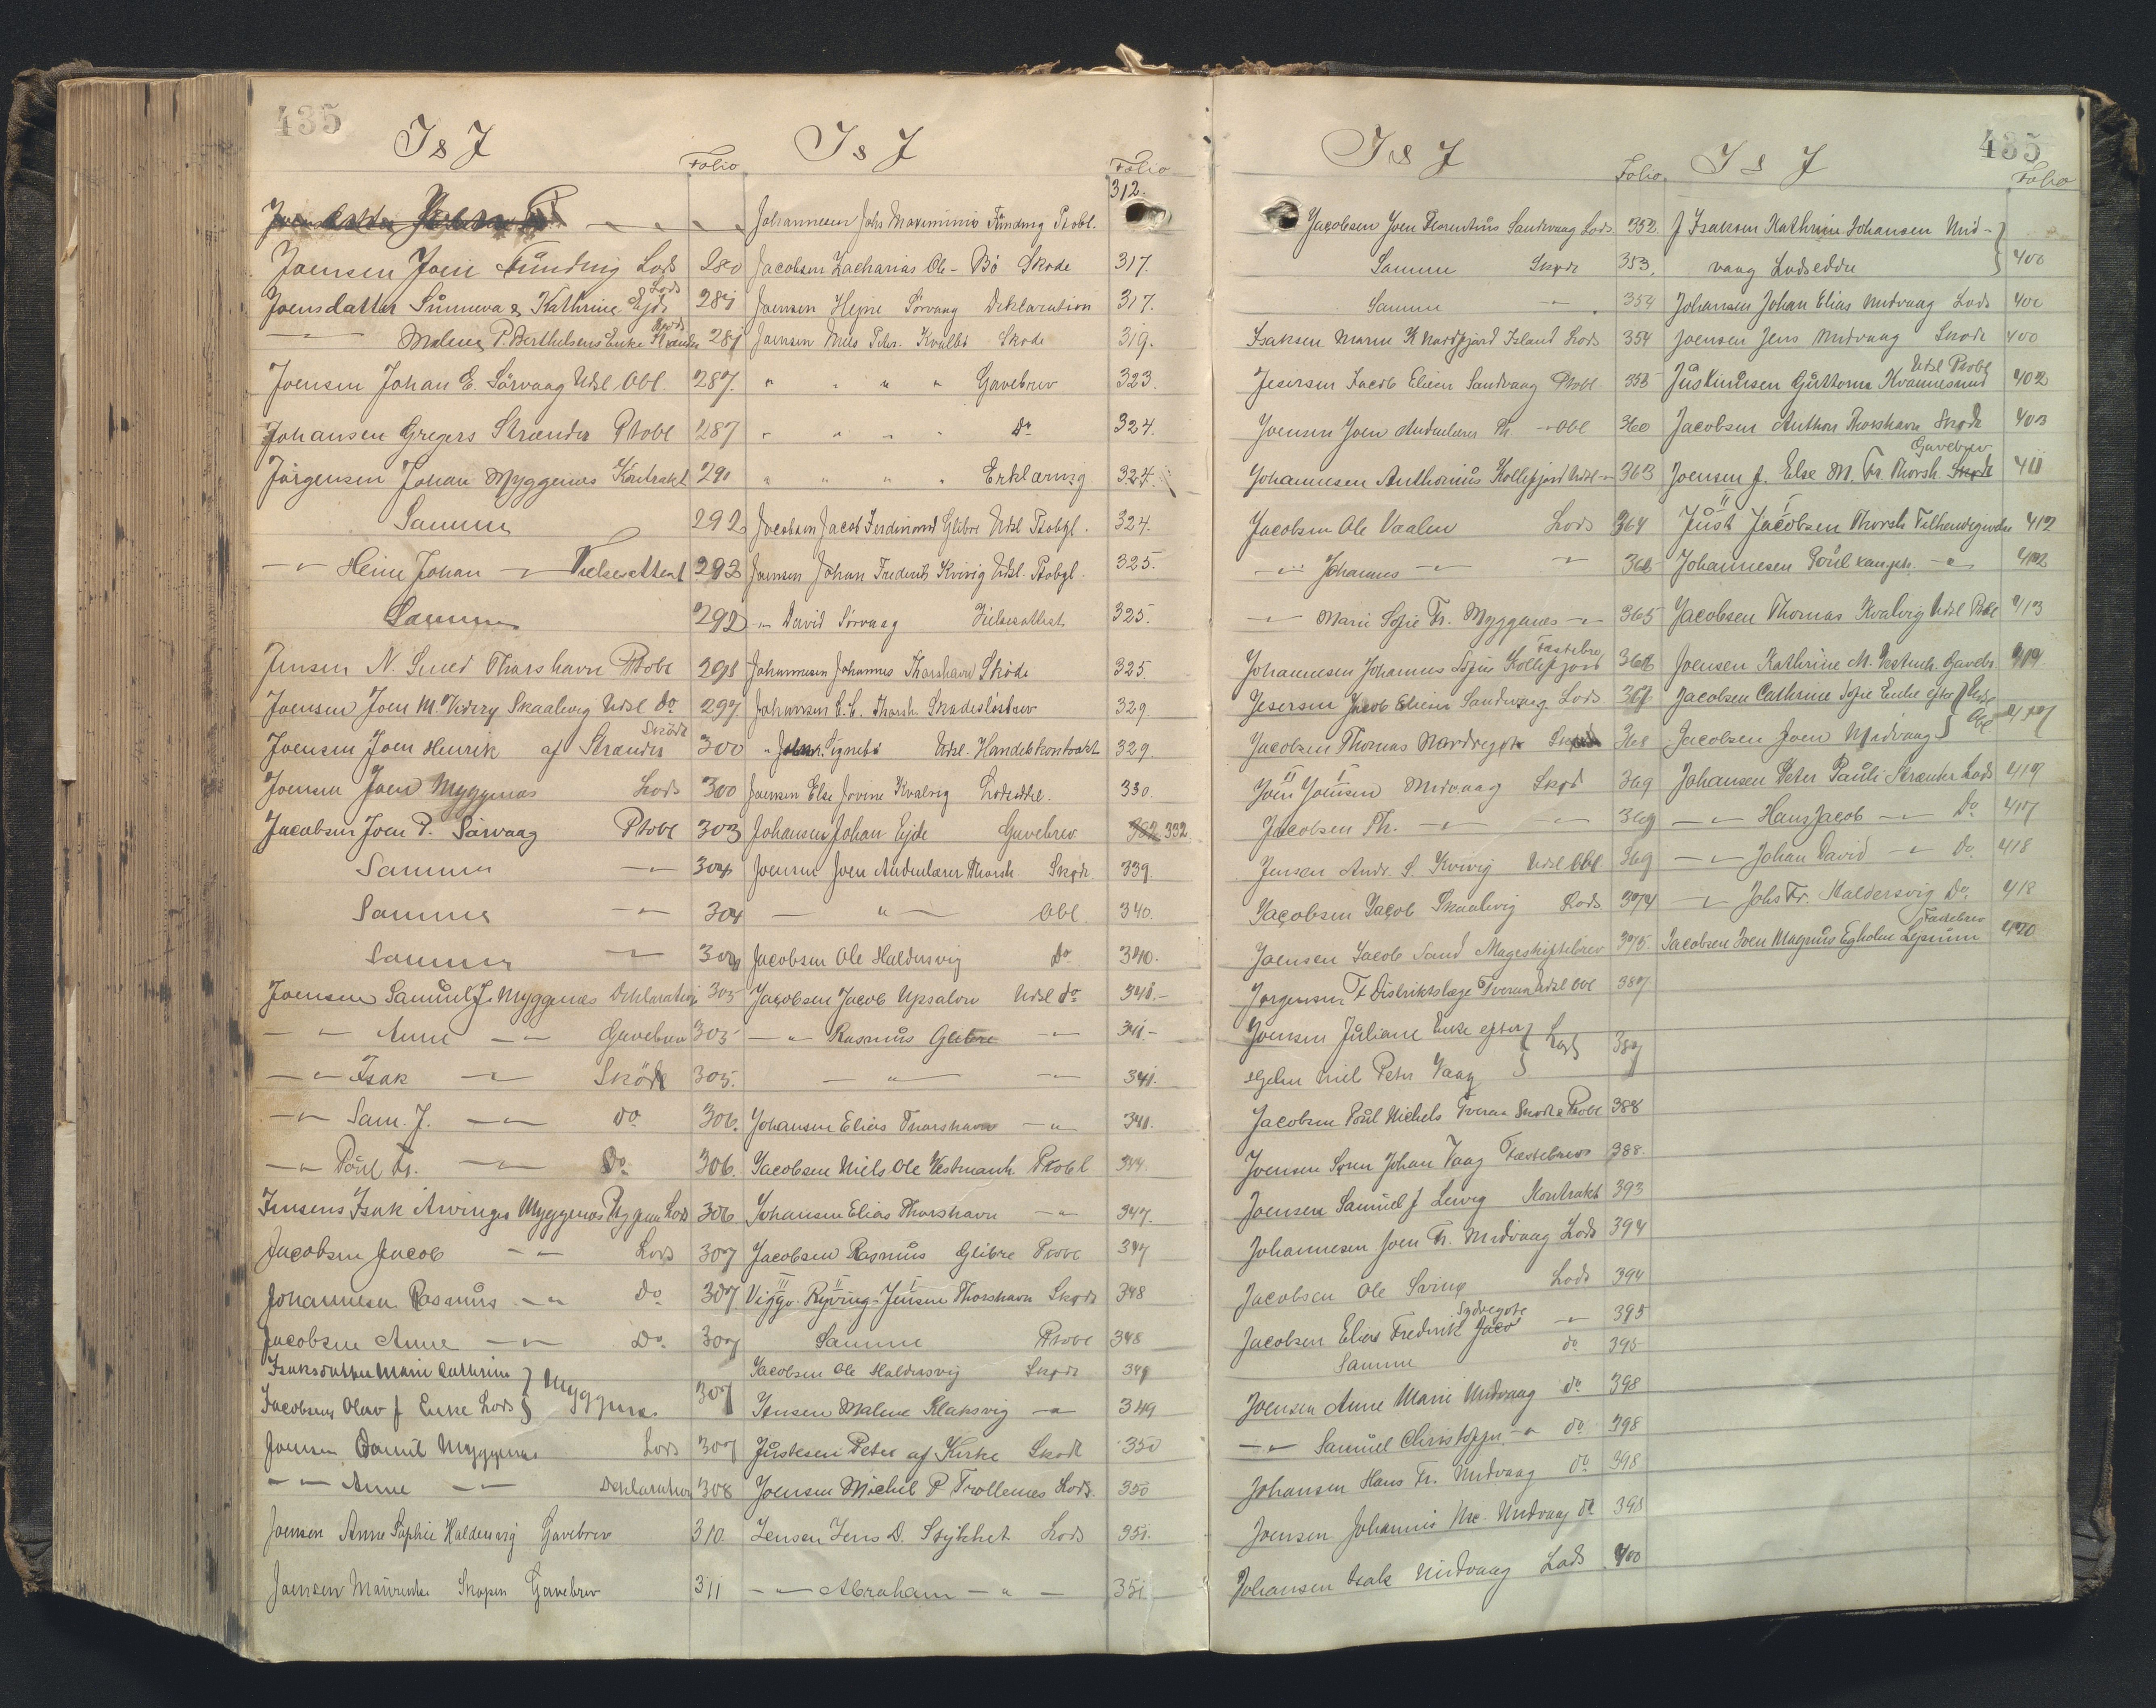 435
I & J
Folio
Joensen Joen Funding Lods 280
Joensdatter Sunneva & Kathrine Ejde Lods 281
Malene P. Berthelsens Enke Strænder Lods 281
Joensen Johan E. Sörvaag Udsl Obl. 287.
Johansen Gregers Strænder Ptobl 287
Jörgensen Johan Myggenæs Kontrakt 291
Samme 292
-"- Heine Johan -"- Vielsesattest 293
Samme 292
Jensen N. Smed Thorshavn Ptobl 298
Joensen Joen M. Skaalevig Udsl do 297
Joensen Joen Henrik af Strænder Skøde 300
Joensen Joen Myggenæs Lods 300
Jacobsen Joen P. Sørvaag Ptobl 303
Samme -"- 304
Samme -"- 304
Samme -"- 304
Joensen Samuel J. Myggenæs Deklaration 305
-"- Anne -"- Gavebrev 305
-"- Isak -"- Skøde 305.
-"- Sam. J. -"- do 306.
-"- Poul Fr. -"- Do 306.
Jensens Isak Arvinger Myggenæs Lods 306
Jacobsen Jacob -"- Lods 307
Johannesen Rasmus -"- Do 307
Jacobsen Anne -"- Do. 307
Isaksdatter Marie Cathrine } Myggenæs 307
Jacobsens Olav J Enke Lods
Joensen Daniel Myggenæs Lods 307
-"- Anne -"- Deklaration 308
Joensen Anne Sophie Haldersvig Gavebrev 310.
Joensen Maurentse Skopen Gavebrev 311
I & J
Folio
312.
Johannesen Johs Maximinus Funding Ptobl.
Jacobsen Zacharias Ole - Bø Skøde 317.
Joensen Hejne Sørvaag Deklaration 317.
Joensen Niels Peter. Kvalbø Skøde 319.
" " " " Gavebrev 323.
" " " " Do 324.
" " " " Erklæring 324.
Jacobsen Jacob Ferdinand Glibre Udsl Ptobgl. 324.
Joensen Johan Frederik Kvivig Udsl. Ptobgl. 325.
-"- David Sørvaag Vielsesattest 325.
Johannesen Johannes Thorshavn Skøde 325.
Johannesen E. E. Thorsh. Skadesløsbrev 329.
" Johs. Signebø Udsl. Handelskontrakt 329.
Joensen Else Jovine Kvalvig Lodseddel. 330.
Johansen Johan Ejde Gavebrev 332
Joensen Joen Andenlærer Thorsh. Skøde 339.
— " — Obl. 340.
Jacobsen Ole Haldersvig Do 340.
Jacobsen Jacob Upsalon Udsl do 341.-
-"- Rasmus Glibre -"- 341.-
-"- -"- 341.
Johansen Elias Thorshavn -"- 341.
Jacobsen Niels Ole Vestmanh. Ptobl 344.
Johansen Elias Thorshavn -"- 347.
Jacobsen Rasmus Glibre Ptobl 347
Viggo Ryving-Jensen Thorshavn Skøde 348
Samme Ptobl 348
Jacobsen Ole Haldersvig Skøde 349
Jensen Malene Klaksvig -"- 349
Justesen Peter af Kirke Skøde 350
Joensen Michel P Trøllenes Lods. 350
Jensen Jens D. Stykket Lods 351.
-"- Abraham -"- 351
I & J
Folio
Jacobsen Joen Florentius Sandvaag Lods 352.
Samme Skøde 353.
Samme -"- 354
Isaksen Marne K Nordfjord Island Lods 354
Jesersen Jacob Eliesen Sandvaag Ptobl 358
Joensen Joen Andenlærer Th. -"- Obl 360
Johannesen Anthonius Kollefjord Udsl -"- 363
Jacobsen Ole Vaalen Lods 364
-"- Johannes -"- -"- 365
-"- Marie Sofie Fr. Myggenæs -"- 365
Johannesen Johannes Sofus Kollefjord Fæstebrev 366
Jesersen Jacob Eliesen Sandvaag Lods 367
Jacobsen Thomas Nordregøte Skøde 368
Joen Joensen Midvaag Skød 369
Jacobsen Th. -"- -"- 369
Jensen Andr. S. Kvivig Udsl Obl 369
Jacobsen Jacob Skaalevig Lods 374
Joensen Jacob Sand Mageskiftebrev 375.
Jørgensen F Distriktslæge Tveraa Udsl Obl 387
Joensen Juliane Enke efter } Lods 387
Niels Peter Vaag
Jacobsen Poul Michels Tveraa Skøde Ptobl 388
Joensen Søren Johan Vaag Fæstebrev 388.
Joensen Samuel J Lervig Kontrakt 393
Johannesen Joen Fr. Midvaag Lods 394
Jacobsen Ole Sving Lods 394
Jacobsen Elias Frederik Sydregøte -"- 395
Samme do 395
Joensen Anne Marie Midvaag do 398
-"- Samuel Christoffer -"- do 398
Johansen Hans Fr. Midvaag do 398
Joensen Johannis Midvaag do 398
Johansen Isak Midvaag Lods 400
435
I & J
Folio
J Isaksen Kathrine Johansen Mid- }
vaag Lodseddel 400
Johansen Johan Elias Midvaag Lods 400
Joensen Jens Midvaag Skøde 400
Justinussen Guttorm Kvannesund Udsl Ptobl 402
Jacobsen Anthon Thorshavn Skøde 403
Joensen J. Else M. Fr. Thorsh. Gavebrev 411
Just Jacobsen Thorsh 412
Johannesen Poul -"- 412
Jacobsen Thomas Kvalvig Udsl Ptobl 413
Joensen Kathrine M. Vestmh. Gavebr. 414
Jacobsen Cathrine Sofie Enke efter } Udsl
Jacobsen Joen Midvaag } Obl 417
Johansen Peter Pauli Strænder Lods 419
-"- Hans Jacob -"- Do 417
-"- Johan David -"- Do 418
-"- Johs Fr. Haldersvig Do. 418
Jacobsen Joen Magnus Egholm Fæstebrev 420